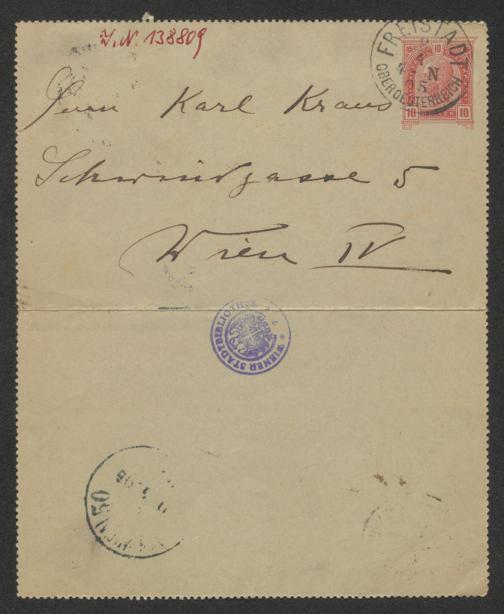 I.N. 138809
FREISTADT
N
OBEROESTERREICH
10 10
Herrn Karl Kraus
Schwindgasse 5
Wien IV
WIENER STADTBIBLIOTHEK
WIEN 50